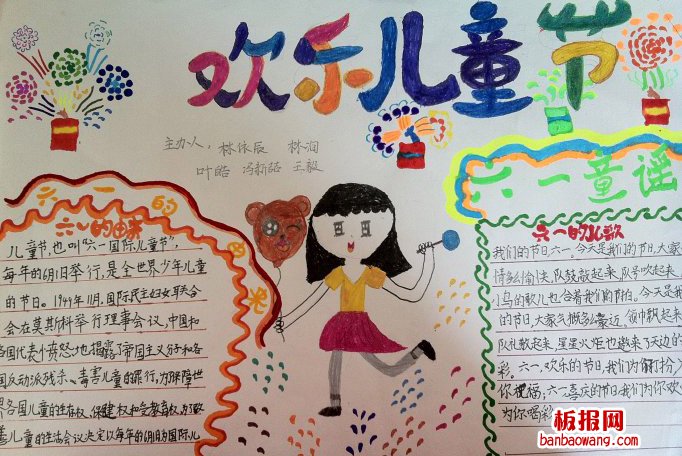 欢乐儿童节
主办人：林依辰 林润
叶皓 冯新皓 王毅
六一的由来
儿童节，也叫“六一国际儿童节”，
每年的6月1日举行，是全世界少年儿童
的节日。1949年11月，国际民主妇女联合会
会在莫斯科举行理事会议，中国和
各国代表愤怒地揭露了帝国主义分子和各
国反动派残杀、毒害儿童的罪行，为保障世
界各国儿童的生存权、保健权和受教育权，为了改
善儿童的生活会议决定以每年的6月1日为国际儿
六一童谣
六一的儿歌
我们的节日六一。今天是我们的节日，大家
情多么愉快，队鼓敲起来，队号吹起来，
小鸟的歌儿也合着我们的节拍。今天是我
的节日，大家气概多豪迈。领巾飘起来
队礼敬起来，星星火炬也映来了天边的
彩。六一，欢乐的节日，我们为你打扮，
你祝福；六一喜庆的节日我们为你欢
为你喝彩
板报网
banbaowang.com